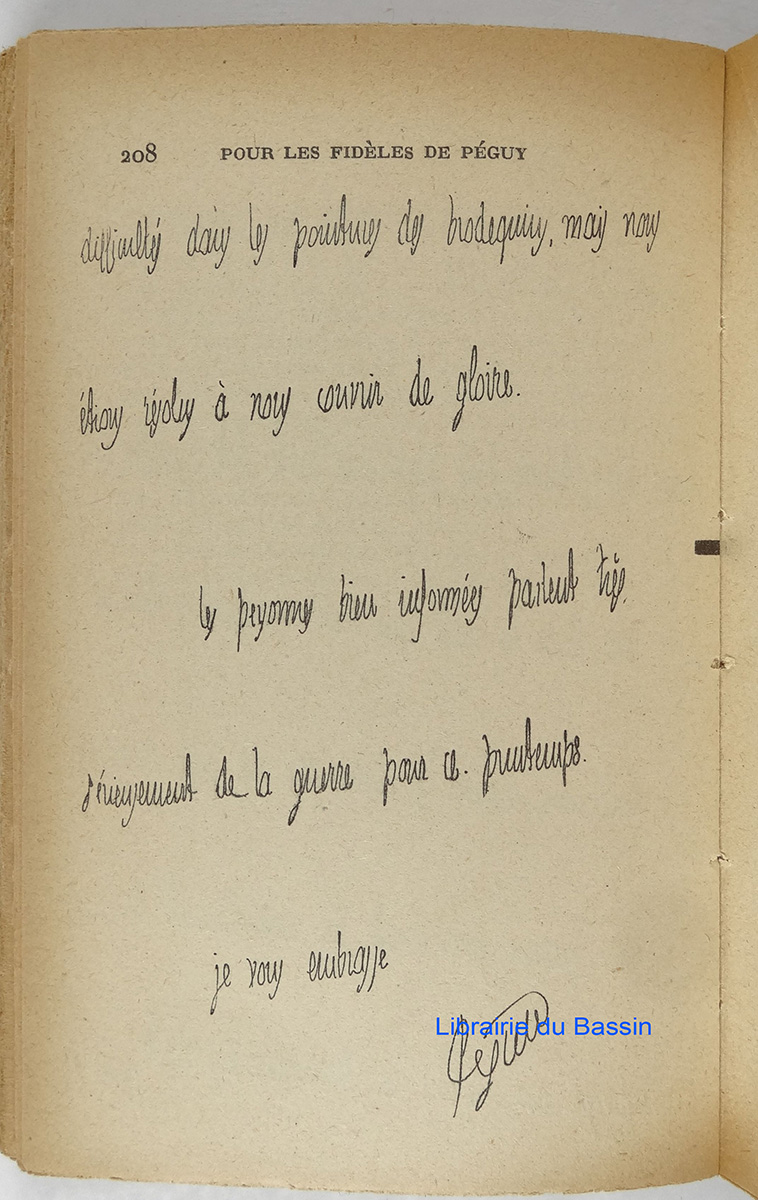 208 POUR LES FIDÈLES DE PÉGUY
difficultés dans les pointures des brodequins, mais nous
étions résolus à nous couvrir de gloire.
les personnes bien informées parlent très
sérieusement de la guerre pour ce printemps.
je vous embrasse
Librairie du Bassin
Péguy